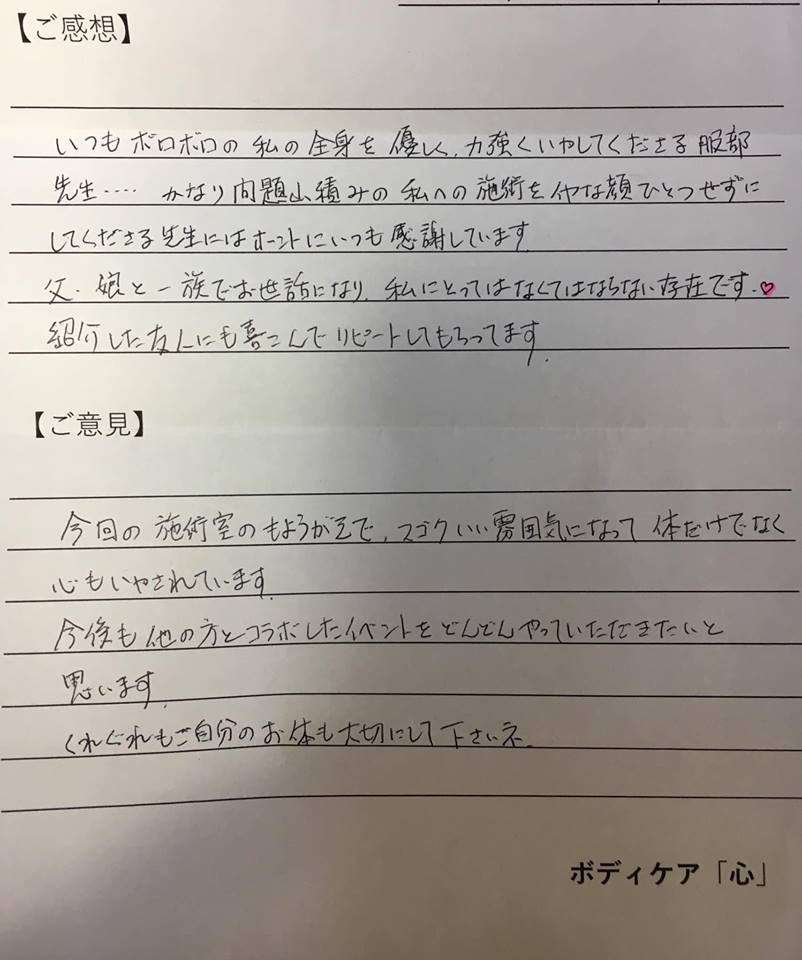 【ご感想】
いつもボロボロの私の全身を優しく、力強くいやしてくださる服部
先生‥‥ かなり問題山積みの私への施術をイヤな顔ひとつせずに
してくださる先生にはホントにいつも感謝しています。
父・娘と一族でお世話になり、私にとってはなくてはならない存在です。♥
紹介した友人にも喜こんでリピートしてもらってます。
【ご意見】
今回の施術室のもようがえで、スゴクいい雰囲気になって体だけでなく
心もいやされています。
今後も他の方とコラボしたイベントをどんどんやっていただきたいと
思います。
くれぐれもご自分のお体も大切にして下さいネ。
ボディケア「心」